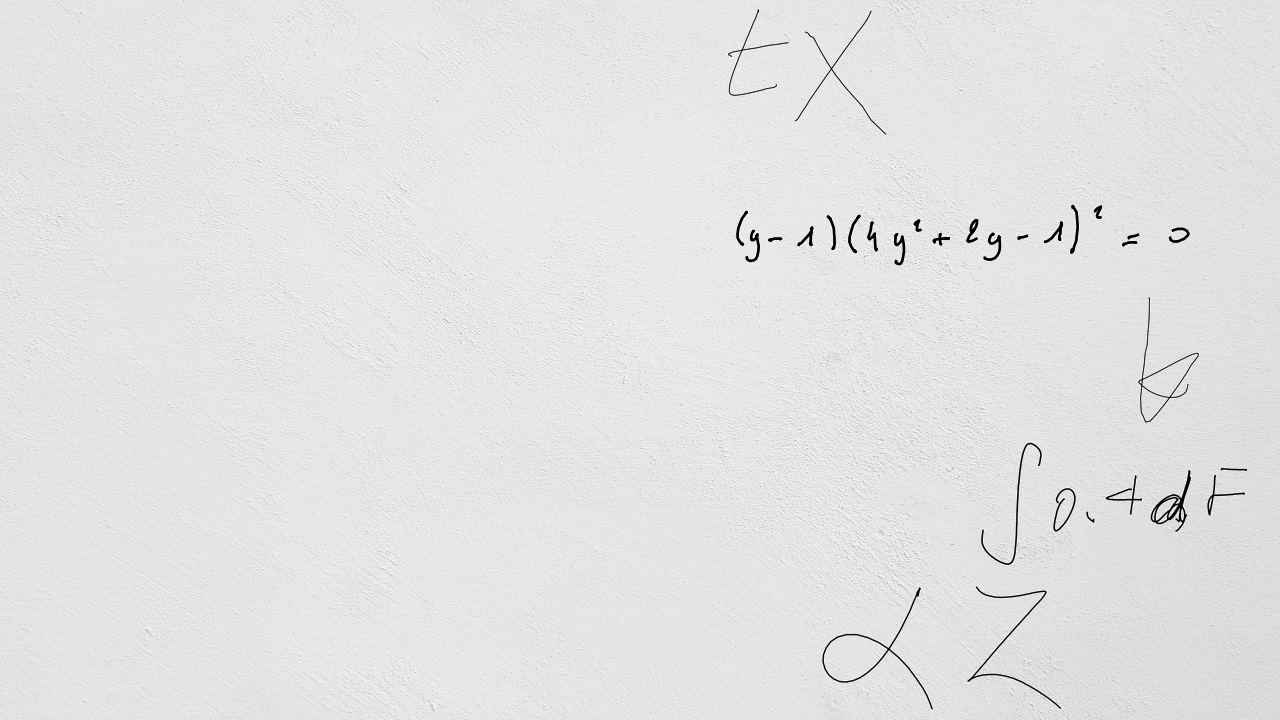 tX
(y-1)(4y²+2y-1)²=0
b
∫0.4dF
αZ